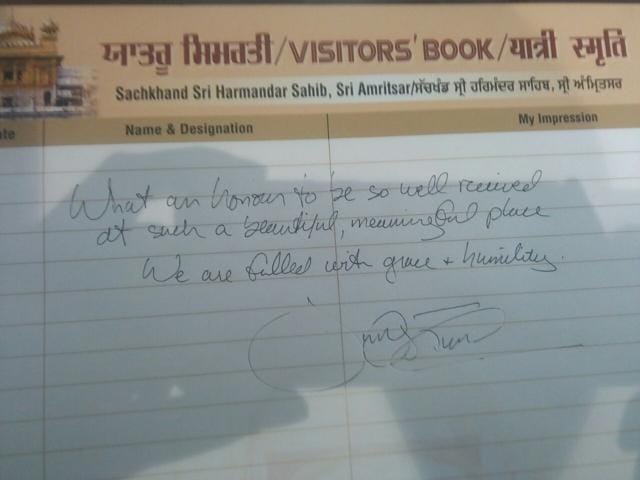 ਯਾਤਰੂ ਸਿਮਰਤੀ/VISITORS' BOOK/यात्री स्मृति
Sachkhand Sri Harmandar Sahib, Sri Amritsar/ਸੱਚਖੰਡ ਸ੍ਰੀ ਹਰਿਮੰਦਰ ਸਾਹਿਬ, ਸ੍ਰੀ ਅੰਮ੍ਰਿਤਸਰ
Name & Designation
My Impression
What an honour to be so well received
at such a beautiful, meaningful place
We are filled with grace + humility.